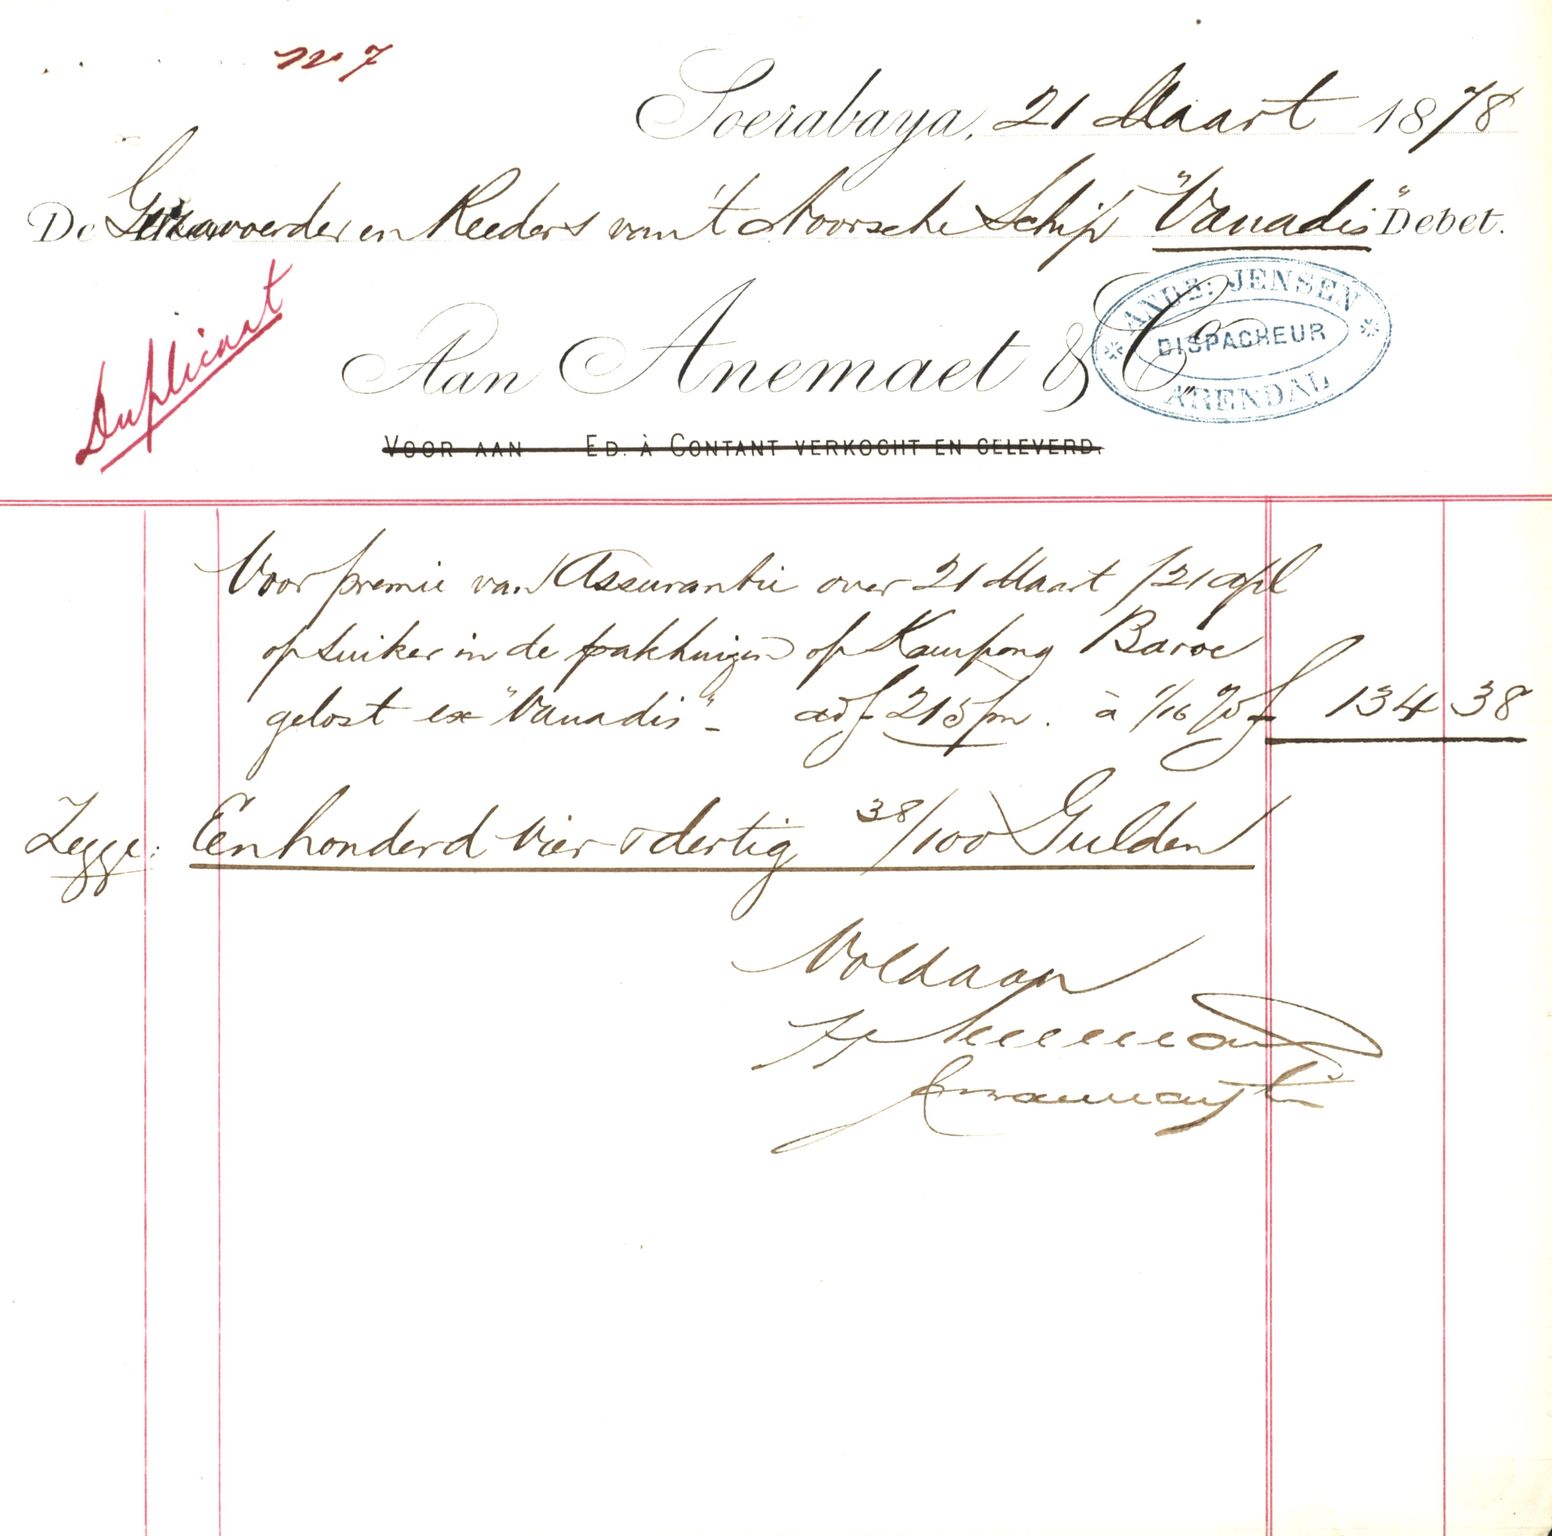 No 7
Soerabaya, 21 Maart 1878
De Gezavoerder en Reeders van 't Noorsche Schip "Vanadis" Debet.
Duplicaat
Aan Anemaet & Co
ANDR: JENSEN
DISPACHEUR
ARENDAL
VOOR AAN ED. À CONTANT VERKOCHT EN GELEVERD.
Voor premie van Assurantie over 21 Maart / 21 apl
op suiker in de pakhuizen op Kampong Baroe
gelost ex "Vanadis" - ad f 215/m. à 1/16 % f 134 38
Zegge: Eenhonderd vier & dertig 38/100 Gulden
Voldaan